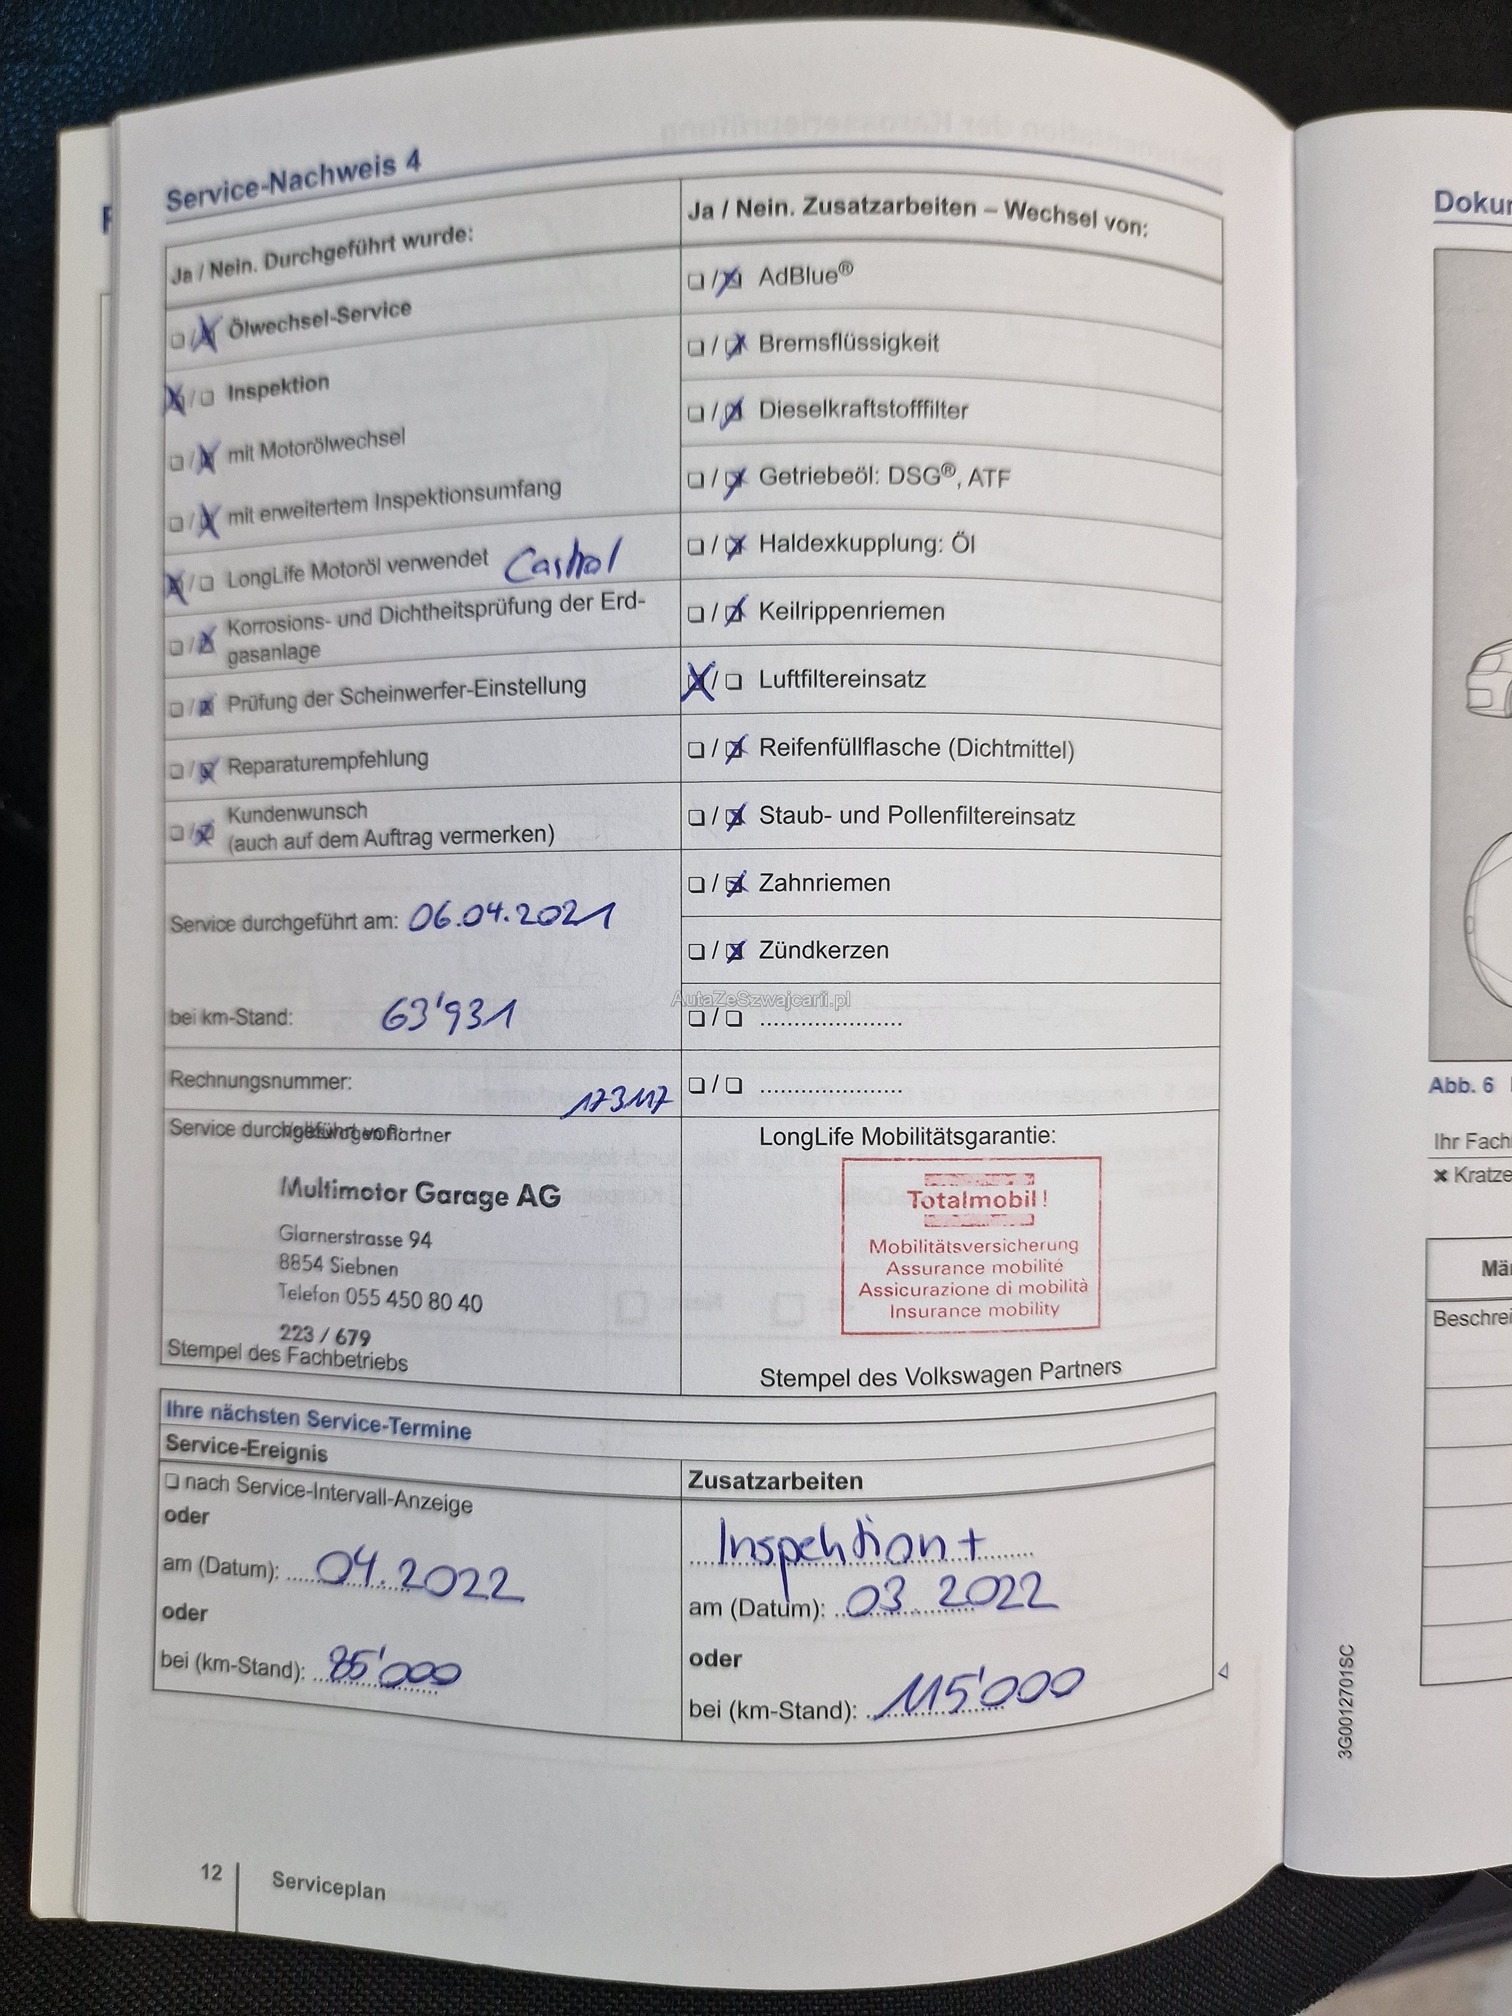 Service-Nachweis 4
Ja / Nein. Durchgeführt wurde:
Ölwechsel-Service
Inspektion
mit Motorölwechsel
mit erweitertem Inspektionsumfang
LongLife Motoröl verwendet Castrol
Korrosions- und Dichtheitsprüfung der Erd-
gasanlage
Prüfung der Scheinwerfer-Einstellung
Reparaturempfehlung
Kundenwunsch
(auch auf dem Auftrag vermerken)
Service durchgeführt am: 06.04.2021
bei km-Stand: 63'931
Rechnungsnummer: 173117
Service durchgeführt von:
Multimotor Garage AG
Glarnerstrasse 94
8854 Siebnen
Telefon 055 450 80 40
223 / 679
Stempel des Fachbetriebs
Ja / Nein. Zusatzarbeiten – Wechsel von:
AdBlue®
Bremsflüssigkeit
Dieselkraftstofffilter
Getriebeöl: DSG®, ATF
Haldexkupplung: Öl
Keilrippenriemen
Luftfiltereinsatz
Reifenfüllflasche (Dichtmittel)
Staub- und Pollenfiltereinsatz
Zahnriemen
Zündkerzen
AutaZeSzwajcarii.pl
LongLife Mobilitätsgarantie:
Totalmobil!
Mobilitätsversicherung
Assurance mobilité
Assicurazione di mobilità
Insurance mobility
Stempel des Volkswagen Partners
Ihre nächsten Service-Termine
Service-Ereignis
nach Service-Intervall-Anzeige
oder
am (Datum): 04.2022
oder
bei (km-Stand): 85'000
Zusatzarbeiten
Inspektion +
am (Datum): 03.2022
oder
bei (km-Stand): 115'000
12
Serviceplan
3G0012701SC
Abb. 6
Ihr Fach
Kratze